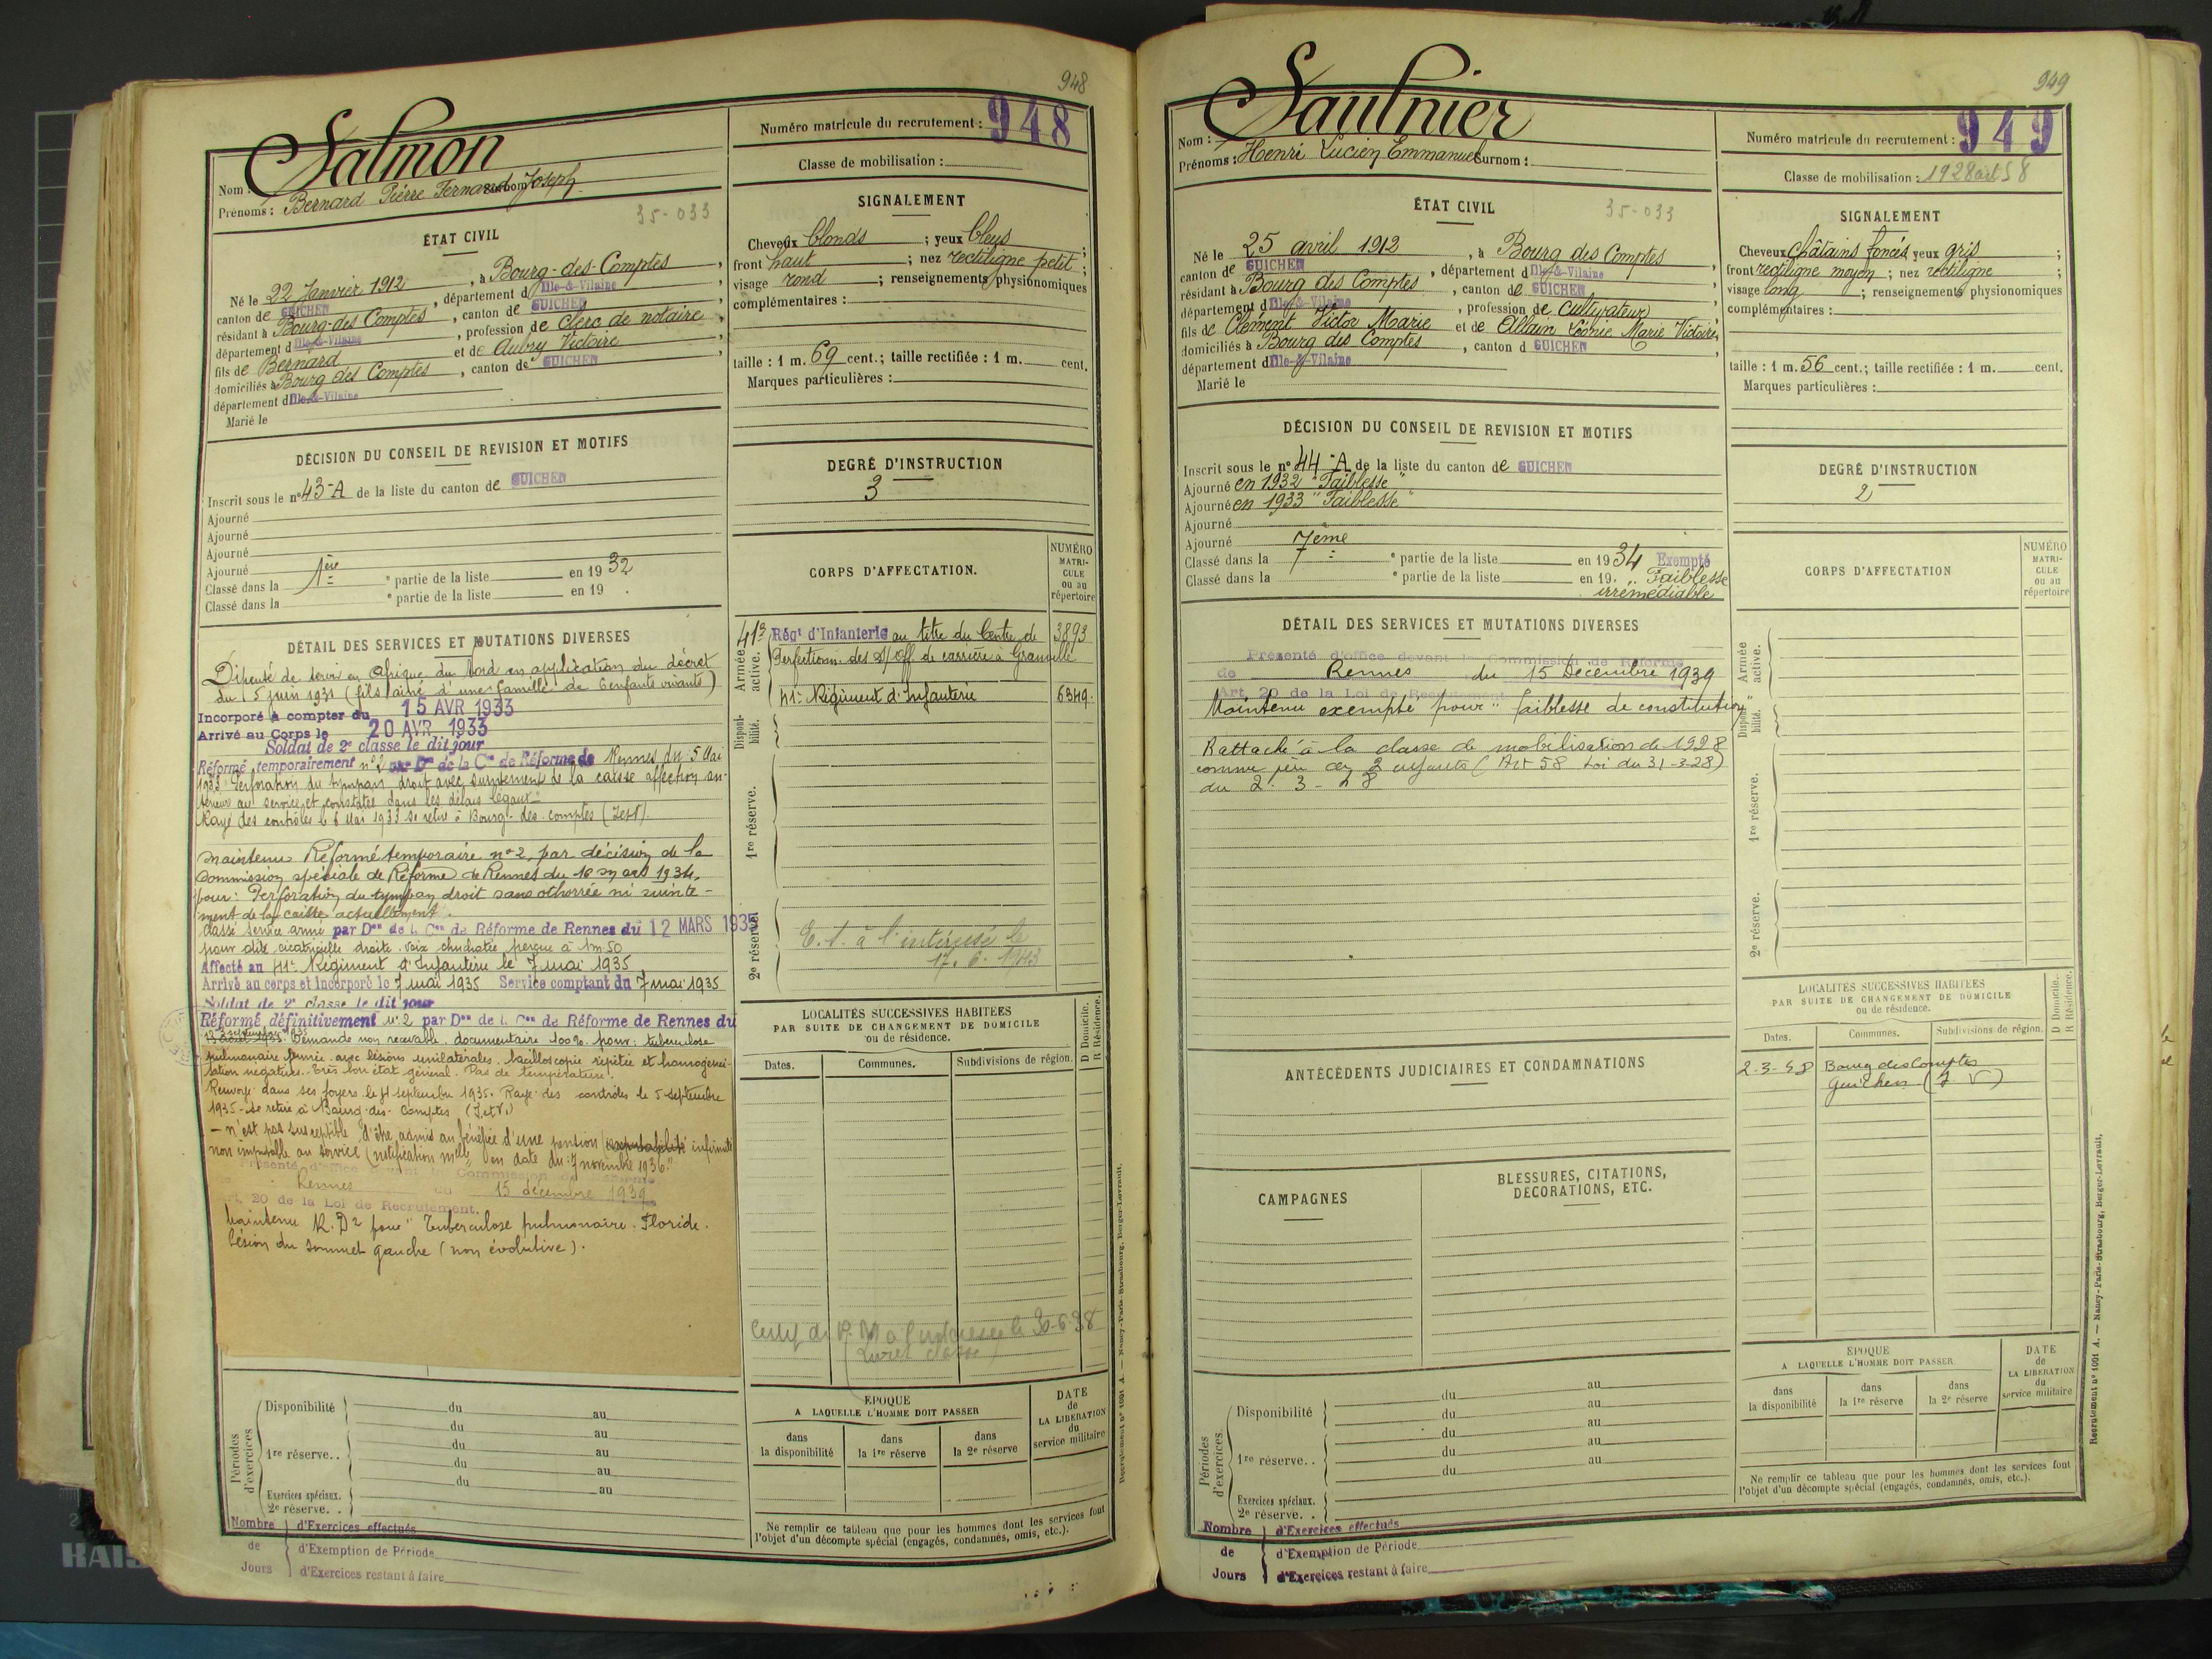 948
Salmon
Nom :
Prénoms : Bernard Pierre Fernand Joseph
35-033
ÉTAT CIVIL
Né le 22 Janvier 1912, à Bourg-des-Comptes,
canton de GUICHEN, département d'Ille-&-Vilaine
résidant à Bourg-des Comptes, canton de GUICHEN
département d'Ille-&-Vilaine, profession de clerc de notaire,
fils de Bernard et de Aubry Victoire
domiciliés à Bourg des Comptes, canton de GUICHEN,
département d'Ille-&-Vilaine
Marié le
DÉCISION DU CONSEIL DE REVISION ET MOTIFS
Inscrit sous le n° 43-A de la liste du canton de GUICHEN
Ajourné
Ajourné
Ajourné
Ajourné
Classé dans la 1ère e partie de la liste en 1932
Classé dans la e partie de la liste en 19 .
DÉTAIL DES SERVICES ET MUTATIONS DIVERSES
Dispensé de servir en Afrique du Nord en application du décret
du 5 juin 1931 (fils aîné d'une famille de 6 enfants vivants)
Incorporé à compter du 15 AVR 1933
Arrivé au Corps le 20 AVR 1933
Soldat de 2e classe le dit jour
Réformé temporairement n° 2 par Don de la Con de Réforme de Rennes du 5 Mai
1933 Perforation du tympan droit avec suintement de la caisse affection an-
térieure au service et constatée dans les délais légaux
Rayé des contrôles le 6 Mai 1933 se retire à Bourg-des-comptes (IetV).
Maintenu Réformé temporaire n° 2, par décision de la
Commission spéciale de Réforme de Rennes du 16 mars 1934,
pour : Perforation du tympan droit sans othorrée ni suinte-
ment de la caisse actuellement.
Classé service armé par Don de la Con de Réforme de Rennes du 12 MARS 1935
pour otite cicatricielle droite. voix chuchotée perçue à 1m50
Affecté au 41e Régiment d'Infanterie le 7 mai 1935
Arrivé au corps et incorporé le 7 mai 1935 Service comptant du 7 mai 1935
Soldat de 2e classe le dit jour
Réformé définitivement n° 2 par Don de la Con de Réforme de Rennes du
3 septembre 1935. Demande non recevable. documentaire 100%. pour : tuberculose
pulmonaire fermée avec lésions unilatérales. bacilloscopie répétée et homogénéi-
sation négatives. Très bon état général. Pas de température.
Renvoyé dans ses foyers le 4 septembre 1935. Rayé des contrôles le 5 septembre
1935 - Se retire à Bourg-des-Comptes (I.etV.)
- n'est pas susceptible d'être admis au bénéfice d'une pension infirmité
non imputable au service (notification Mlle en date du : 7 novembre 1936."
Présenté d'office devant la Commission de Réforme
de Rennes du 15 décembre 1939
Art. 20 de la Loi de Recrutement.
Maintenu R.D2 pour "Tuberculose pulmonaire. Floride.
lésion du sommet gauche (non évolutive).
Périodes d'exercices
Disponibilité du au
du au
1re réserve.. du au
du au
Exercices spéciaux. du au
2e réserve. .
Nombre de Jours
d'Exercices effectués
d'Exemption de Période
d'Exercices restant à faire
Numéro matricule du recrutement : 948
Classe de mobilisation :
SIGNALEMENT
Cheveux blonds ; yeux bleus ;
front haut ; nez rectiligne petit ;
visage rond ; renseignements physionomiques
complémentaires :
taille : 1 m. 69 cent.; taille rectifiée : 1 m. cent.
Marques particulières :
DEGRÉ D'INSTRUCTION
3
CORPS D'AFFECTATION.
NUMÉRO MATRI-CULE ou au répertoire
Armée active.
41e Régt d'Infanterie au titre du Centre de 3893
Perfectionn. des S/off. de carrière à Granville
41e Régiment d'Infanterie 6349.
Disponibilité.
1re réserve.
2e réserve.
E.1. à l'intéressé le
17.6.1943
LOCALITÉS SUCCESSIVES HABITÉES
PAR SUITE DE CHANGEMENT DE DOMICILE
ou de résidence.
D Domicile. R Résidence.
Dates. Communes. Subdivisions de région.
30-6-38
ÉPOQUE
A LAQUELLE L'HOMME DOIT PASSER
DATE de LA LIBÉRATION du service militaire
dans la disponibilité
dans la 1re réserve
dans la 2e réserve
Ne remplir ce tableau que pour les hommes dont les services font
l'objet d'un décompte spécial (engagés, condamnés, omis, etc.).
Recrutement n° 1001 A. — Nancy-Paris-Strasbourg, Berger-Levrault.
949
Saulnier
Nom :
Prénoms : Henri Lucien Emmanuel Surnom :
35-033
ÉTAT CIVIL
Né le 25 avril 1912, à Bourg des Comptes
canton de GUICHEN, département d'Ille-&-Vilaine
résidant à Bourg des Comptes, canton de GUICHEN
département d'Ille-&-Vilaine, profession de cultivateur
fils de Clément Victor Marie et de Allain Léonie Marie Victoire,
domiciliés à Bourg des Comptes, canton d GUICHEN
département d'Ille-&-Vilaine
Marié le
DÉCISION DU CONSEIL DE REVISION ET MOTIFS
Inscrit sous le n° 44-A de la liste du canton de GUICHEN
Ajourné en 1932 "Faiblesse"
Ajourné en 1933 "Faiblesse"
Ajourné
Ajourné
Classé dans la 7ème e partie de la liste en 1934 Exempté
Classé dans la e partie de la liste en 19 . "Faiblesse
irrémédiable
DÉTAIL DES SERVICES ET MUTATIONS DIVERSES
Présenté d'office devant la Commission de Réforme
de Rennes du 15 Décembre 1939
Art. 20 de la Loi de Recrutement
Maintenu exempté pour "faiblesse de constitution"
Rattaché à la classe de mobilisation de 1928
comme père de 2 enfants (Art 58 Loi du 31-3-28)
du 2. 3 - 48
ANTÉCÉDENTS JUDICIAIRES ET CONDAMNATIONS
CAMPAGNES
BLESSURES, CITATIONS,
DÉCORATIONS, ETC.
Périodes d'exercices.
Disponibilité du au
du au
du au
1re réserve. . du au
du au
Exercices spéciaux.
2e réserve. .
Nombre de Jours
d'Exercices effectués
d'Exemption de Période
d'Exercices restant à faire
Numéro matricule du recrutement : 949
Classe de mobilisation : 1928 art 58
SIGNALEMENT
Cheveux châtains foncés, yeux gris ;
front rectiligne moyen ; nez rectiligne ;
visage long ; renseignements physionomiques
complémentaires :
taille : 1 m. 56 cent.; taille rectifiée : 1 m. cent.
Marques particulières :
DEGRÉ D'INSTRUCTION
2
CORPS D'AFFECTATION
NUMÉRO MATRI-CULE ou au répertoire
Armée active.
Disponibilité.
1re réserve.
2e réserve.
LOCALITÉS SUCCESSIVES HABITÉES
PAR SUITE DE CHANGEMENT DE DOMICILE
ou de résidence.
D Domicile. R Résidence.
Dates. Communes. Subdivisions de région.
2-3-48 Bourg des Comptes
Guichen (I V)
ÉPOQUE
A LAQUELLE L'HOMME DOIT PASSER
DATE de LA LIBÉRATION du service militaire
dans la disponibilité
dans la 1re réserve
dans la 2e réserve
Ne remplir ce tableau que pour les hommes dont les services font
l'objet d'un décompte spécial (engagés, condamnés, omis, etc.).
Recrutement n° 1001 A. — Nancy-Paris-Strasbourg, Berger-Levrault.